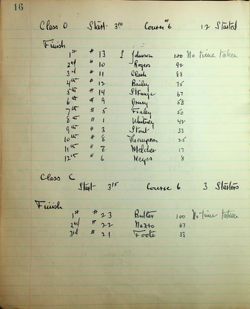 16
Class D Start 3:10 Course #6 12 Started
Finish
1st # 13 Johnson 100 No time taken
2nd # 10 Rogers 92
3rd # 11 Clark 83
4th # 12 Bailey 75
5th # 14 67
6th # 9 58
7th # 5 50
8th # 1 42
9th # 3 33
10th # 8 Thompson 25
11th # 7 Melcher 17
12th # 6 8
Class C
Start 3:15 Course 6 3 Starters
Finish
1st # 23 Butler 100 No time taken
2nd # 22 67
3rd # 21 Foote 33